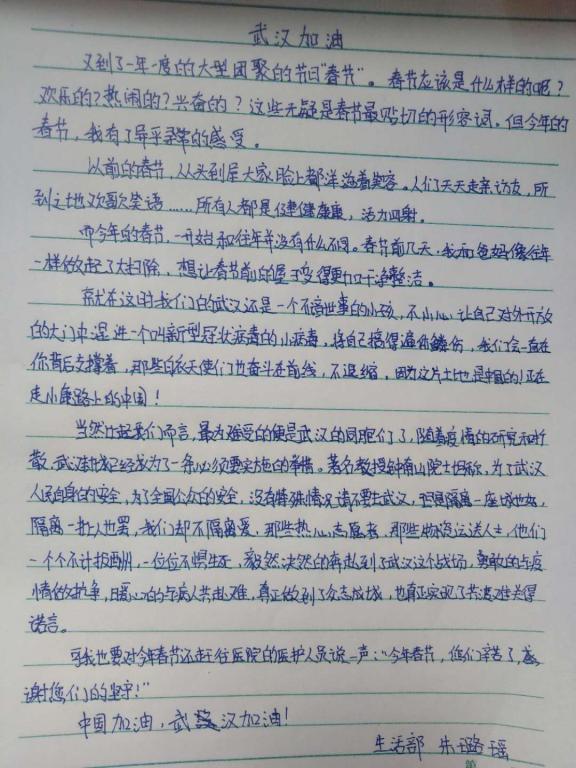 武汉加油
又到了一年一度的大型团聚的节日"春节"。春节应该是什么样的呢？
欢乐的？热闹的？兴奋的？这些无疑是春节最贴切的形容词。但今年的
春节，我有了异乎寻常的感受。
以前的春节，从头到尾大家脸上都洋溢着笑容。人们天天走亲访友，所
到之地欢歌笑语……所有人都是健健康康，活力四射。
而今年的春节，一开始和往年并没有什么不同。春节前几天，我和爸妈像往年
一样做起了大扫除，想让春节前的屋子变得更加干净整洁。
就在这时我们的武汉还是一个不谙世事的小孩，不小心让自己对外开放
的大门中混进一个叫新型冠状病毒的小病毒，将自己搞得遍体鳞伤，我们会一直在
你背后支撑着，那些白衣天使们也奋斗在前线，不退缩，因为这片土地是中国的！正在
走小康路上的中国！
当然比起我们而言，最为难受的便是武汉的同胞们了，随着疫情的研究和扩
散，武汉封城已经成为了一条必须要实施的事情。著名教授钟南山院士也称，为了武汉
人民自身的安全，为了全国公众的安全，没有特殊情况请不要去武汉，但是隔离一座城也好，
隔离一批人也罢，我们却不隔离爱，那些热心志愿者，那些物资运送人士，他们
一个个不计报酬，一位位不惧生死，毅然决然的奔赴到了武汉这个战场，勇敢的与疫
情做抗争，暖心的与病人共赴难，真正做到了众志成城，也真正实现了共渡难关得
诺言。
可我也要对今年春节还赶往医院的医护人员说一声："今年春节，您们辛苦了，感
谢您们的坚守！"
中国加油，武汉加油！
生活部 朱璐瑶